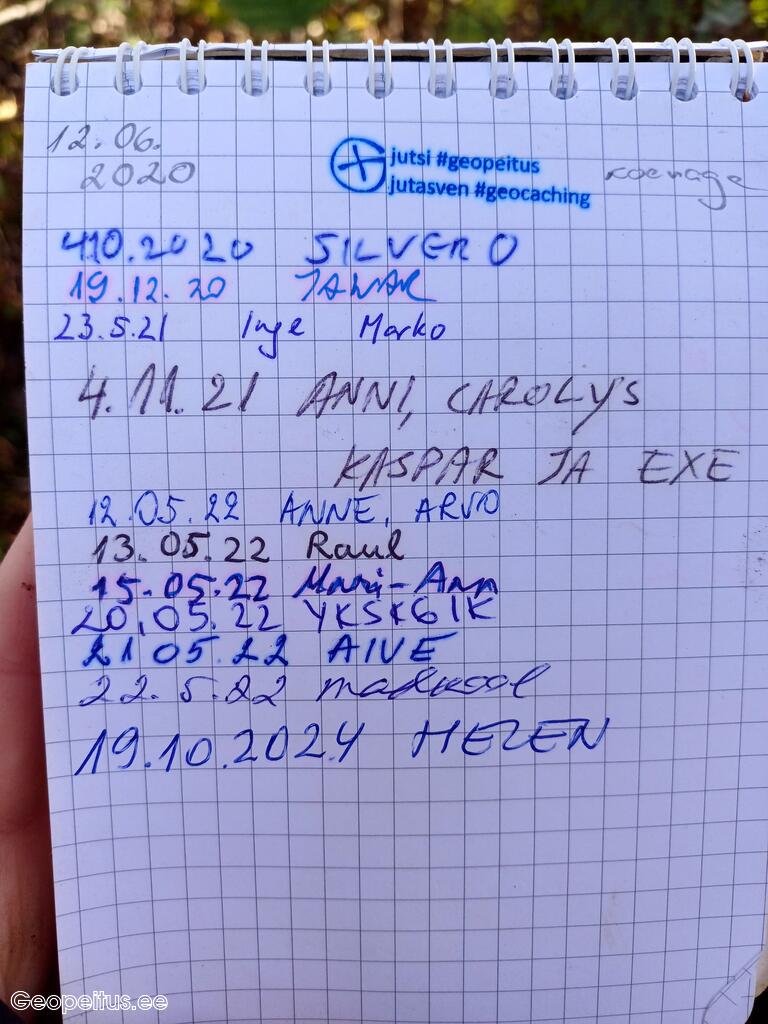 12.06.
2020
jutsi #geopeitus
jutasven #geocaching
koerage
4.10.2020 SILVER O
19.12.20 JANAR
23.5.21 Inge Marko
4.11.21 ANNI, CAROLYS
KASPAR JA EXE
12.05.22 ANNE, ARVO
13.05.22 Raul
15.05.22 Mari-Ann
20.05.22 YKSKÕIK
21 05.22 AIVE
22.5.22
19.10.2024 HELEN
Geopeitus.ee